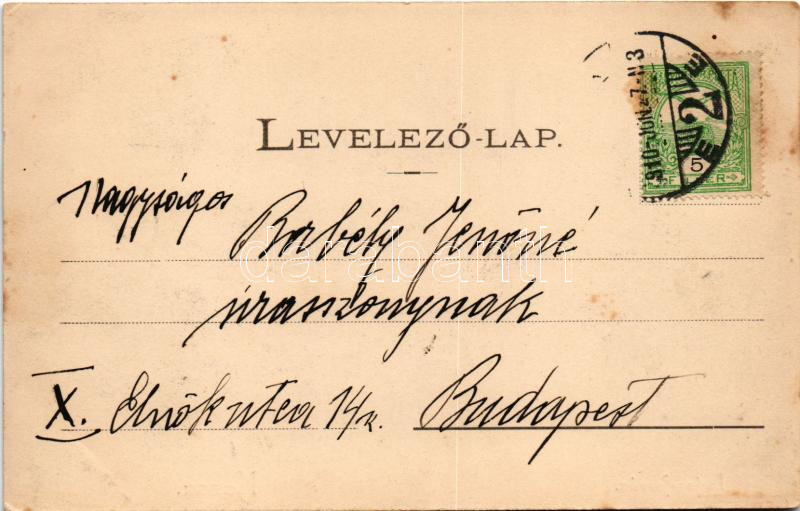 LEVELEZŐ-LAP.
910 JUN. 27. N3
E 2 E
5
FILLÉR
Nagyságos
Borbély Jenőné
úraszonynak
X. Elnök utca 14/a.
Budapest
darabanth